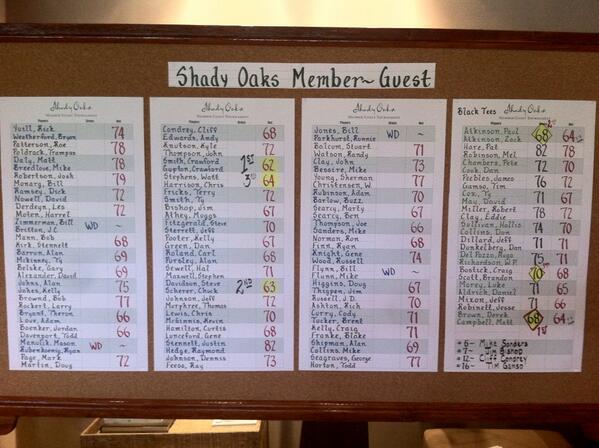 Shady Oaks Member~Guest
Shady Oaks
Member Guest Tournament
Players Gross Net
Yuill, Rick
Weatherford, Bryan 74
Patterson, Roe
Poldrack, Trampas 78
Daly, Matt
Breedlove, Mike 78
Robertson, Josh
Monary, Bill 79
Ramsey, Dick
Nowell, David 72
Derdeyn, Les
Moten, Harrel 72
Zimmerman, Bill
Britton, J.C. WD ~
Mann, Bob
Kirk, Stennett 68
Barron, Alan
McKinley, Ty 69
Belske, Gary
Alexander, David 69
Johns, Alan
Johns, Kelly 75
Brownd, Bob
Rockett, Larry 77
Bryant, Theron
Love, Adam 66
Boenker, Jordan
Davenport, Todd 66
Manulik, Mason
WD ~
Page, Mark
Martin, Doug 72
Shady Oaks
Member Guest Tournament
Players Gross Net
Condrey, Cliff
Edwards, Andy 68
Knutson, Kyle
Thompson, John 72
Smith, Crawford
Gupton, Crawford 1st 62
Stephens, Watt
Harrison, Chris 3rd 64
Fricks, Terry
Smith, Ty 72
Bishop, Jim
Athey, Moggs 67
Fitzgerald, Steve
Sterrett, Jeff 70
Pooter, Kelly
Green, David 67
Roland, Carl
Pursley, Alan 68
Sewell, Hal
Maxwell, Stephen 71
Davidson, Steve
Scherer, Chuck 2nd 63
Johnson, Jeff
Marphree, Thomas 72
Lewis, Chris
McGinnis, Kevin 70
Hamilton, Curtis
Lunceford, Gene 68
Stennett, Justin
Hedge, Raymond 82
Johnson, Dennis
Feero, Ray 73
Shady Oaks
Member Guest Tournament
Players Gross Net
Jones, Bill
Parkhurst, Ronnie WD ~
Balcom, Stuart
Watson, Randy 71
Clay, John
Bessire, Mike 73
Young, Sherman
Christensen, W 77
Robinson, Adam
Barlow, Buzz 70
Searcy, Marty
Searcy, Ben 67
Thompson, Joe
Sanders, Mike 66
Norman, Ron
Linn, Ryan 68
Knight, Gene
Wood, Russell 74
Flynn, Bill
Flunn, Mike WD ~
Higgins, Doug
Thigpen, Jim 67
Russell, J.D.
Ashton, Rich 70
Curry, Cody
Tucker, Brent 71
Kelly, Craig
Franke, Blake 71
Shipman, Alan
Collins, Mike 69
Seagraves, George
Horton, Todd 77
Black Tees Shady Oaks
Member Guest Tournament
Players Gross Net
Atkinson, Paul
Atkinson, Zack 68 64
Hare, Pat
Robinson, Mel 82 78
Chambers, Pete
Cook, Dan 72 70
Peebles, James
Ganso, Tim 76 72
Cox, Ty
May, David 71 67
Miller, Robert
Clay, Eddie 78 72
Sullivan, Hollis
Collins, Dan 74 70
Dillard, Jeff
Dunkelberg, Dan 71 71
Del Pozzo, Rugo
Richardson, W.P. 75 71
Bostick, Craig
Scott, Brandon 70 68
Morey, Luke
Aldrich, Daniel 71 65
Mixon, Jeff
Robinett, Jesse 71 66
Brown, Derek
Campbell, Matt 68 64
1st
* 6~ Mike Sanders
* 7~ Jim Bishop
* 12~ Cliff Condrey
* 16~ Tim Ganso